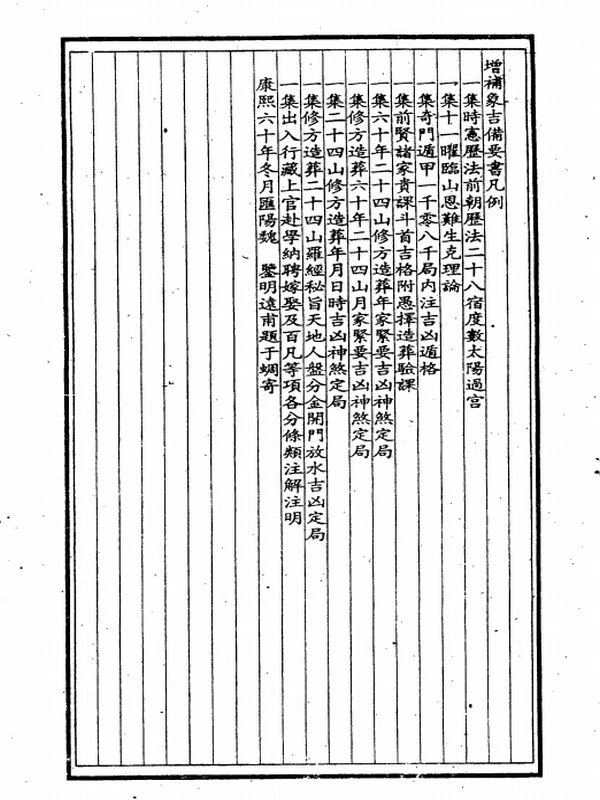 增補象吉備要書凡例
一集時憲歷法前朝歷法二十八宿度數太陽過宮
一集十一曜臨山恩難生克理論
一集奇門遁甲一千零八千局內注吉凶遁格
一集前賢諸家貴課斗首吉格附愚擇造葬驗課
一集六十年二十四山修方造葬年家緊要吉凶神煞定局
一集修方造葬六十年二十四山月家緊要吉凶神煞定局
一集二十四山修方造葬年月日時吉凶神煞定局
一集修方造葬二十四山羅經秘旨天地人盤分金開門放水吉凶定局
一集出入行藏上官赴學納聘嫁娶及百凡等項各分條類注解注明
康熙六十年冬月匯陽魏　鑒明遠甫題于蜩寄